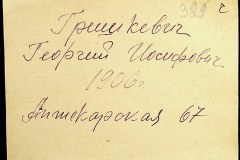 329 ч
Гришкевич
Георгий Иосифович
1906 г.
Аптекарская 67